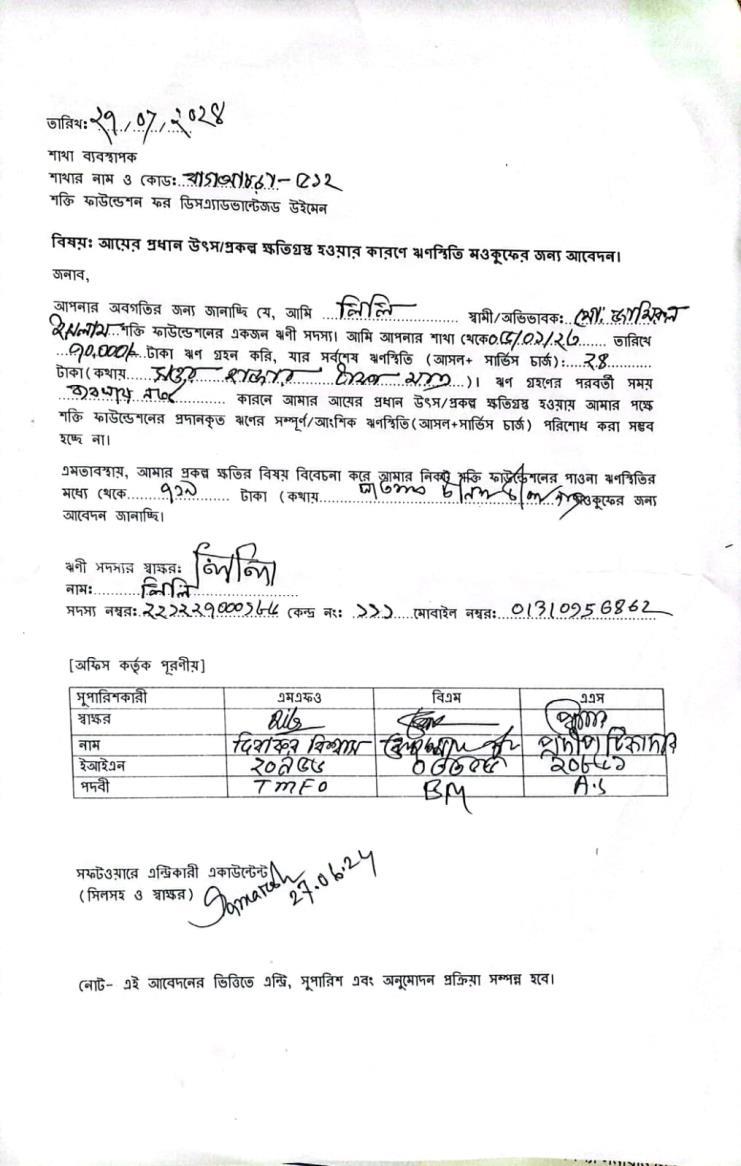 তারিখ: ২৭/০৭/২০২৪
শাখা ব্যবস্থাপক
শাখার নাম ও কোড:
শক্তি ফাউন্ডেশন ফর ডিসএ্যাডভান্টেজড উইমেন
বিষয়: আয়ের প্রধান উৎস/প্রকল্প ক্ষতিগ্রস্ত হওয়ার কারণে ঋণস্থিতি মওকুফের জন্য আবেদন।
জনাব,
আপনার অবগতির জন্য জানাচ্ছি যে, আমি লিলি স্বামী/অভিভাবক: মো:
ইসলাম শক্তি ফাউন্ডেশনের একজন ঋণী সদস্য। আমি আপনার শাখা থেকে তারিখে
৭০,০০০/- টাকা ঋণ গ্রহন করি, যার সর্বশেষ ঋণস্থিতি (আসল+ সার্ভিস চার্জ):
টাকা(কথায় সত্তর হাজার টাকা মাত্র)। ঋণ গ্রহণের পরবর্তী সময়
কারনে আমার আয়ের প্রধান উৎস/প্রকল্প ক্ষতিগ্রস্ত হওয়ায় আমার পক্ষে
শক্তি ফাউন্ডেশনের প্রদানকৃত ঋণের সম্পূর্ণ/আংশিক ঋণস্থিতি(আসল+সার্ভিস চার্জ) পরিশোধ করা সম্ভব
হচ্ছে না।
এমতাবস্থায়, আমার প্রকল্প ক্ষতির বিষয় বিবেচনা করে আমার নিকট শক্তি ফাউন্ডেশনের পাওনা ঋণস্থিতির
মধ্যে থেকে টাকা (কথায় মওকুফের জন্য
আবেদন জানাচ্ছি।
ঋণী সদস্যর স্বাক্ষর: লিলি
নাম: লিলি
সদস্য নম্বর: কেন্দ্র নং: ১১১ মোবাইল নম্বর: 01310956862
[অফিস কর্তৃক পূরণীয়]
সুপারিশকারী এমএফও বিএম এএস
স্বাক্ষর
নাম দিবাকর বিশ্বাস প্রদীপ টিকাদার
ইআইএন
পদবী TMFO BM A.S
সফটওয়ারে এন্ট্রিকারী একাউন্টেন্ট
(সিলসহ ও স্বাক্ষর) 27.06.24
নোট- এই আবেদনের ভিত্তিতে এন্ট্রি, সুপারিশ এবং অনুমোদন প্রক্রিয়া সম্পন্ন হবে।